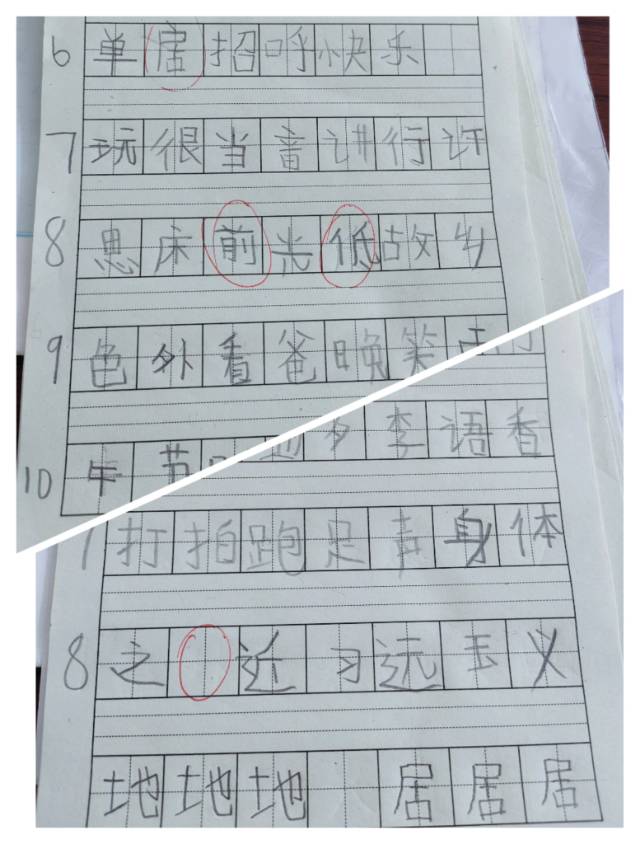 6 单居招呼快乐
7 玩很当音讲行许
8 思床前光低故乡
9 色外看爸晚笑
10 午节 夕李语香
7 打拍跑足声身体
8 之近习远玉义
地地地 居居居